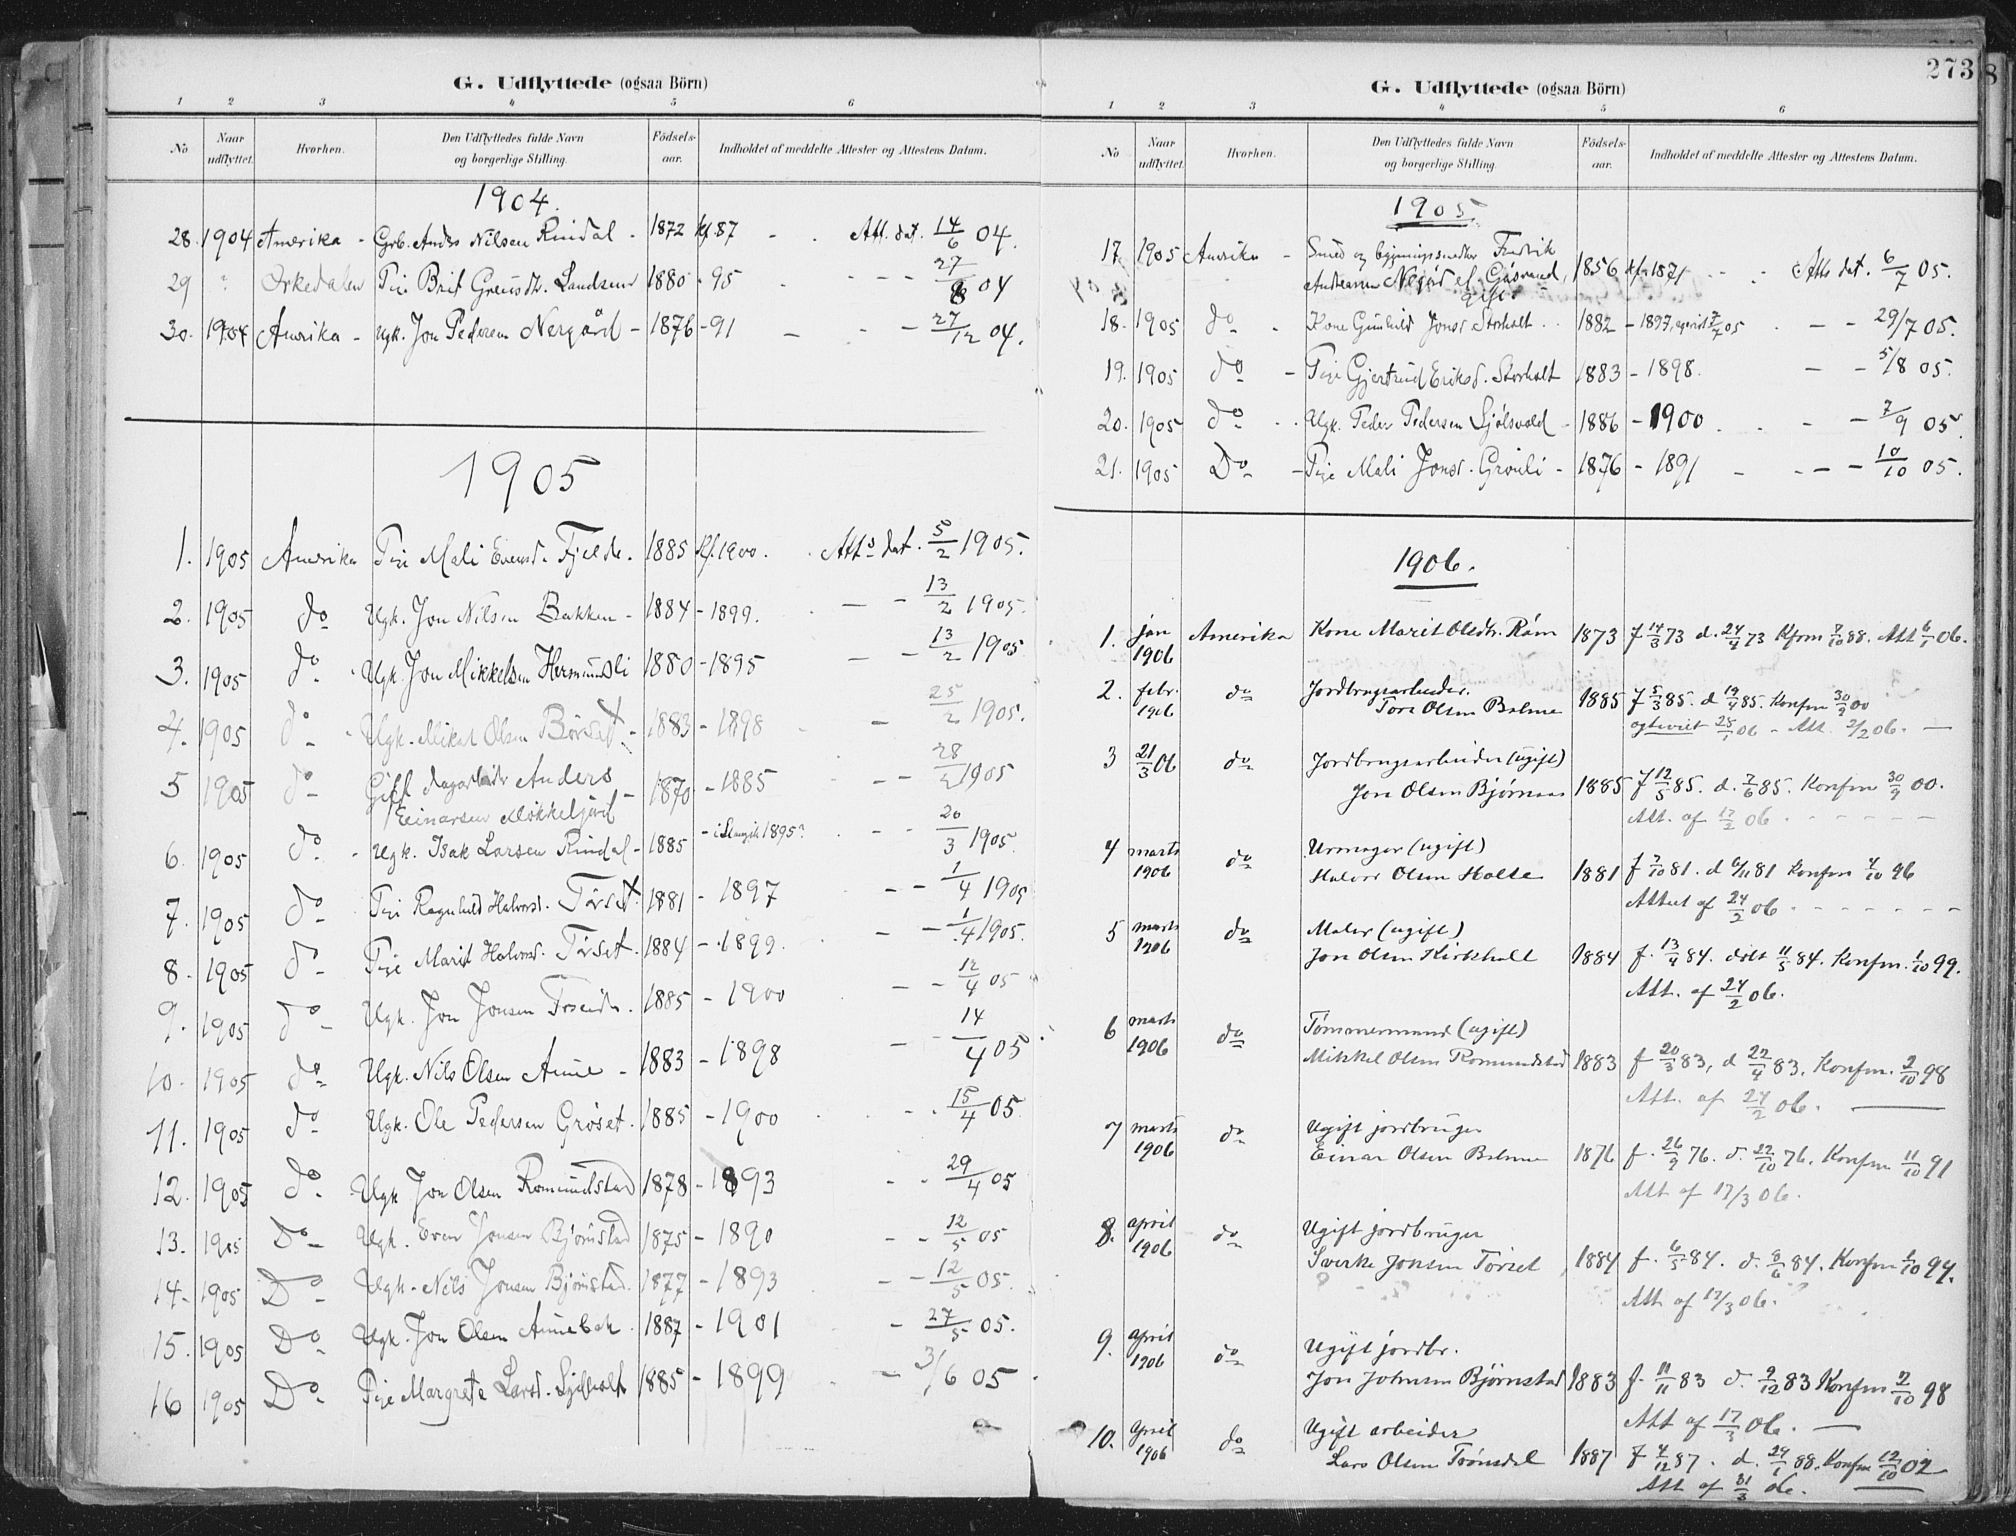 G. Udflyttede (ogsaa Börn)
1 2 3 4 5 6
No Naar udflyttet. Hvorhen. Den Udflyttedes fulde Navn og borgerlige Stilling. Födsels-aar. Indholdet af meddelte Attester og Attestens Datum.
1904.
28. 1904 Amerika - Grb. Anders Nilsen Rindal - 1872 kf. 87 - . Att. dat. 14/6 04.
29 " Orkedalen Pige Brit Landsem 1880 - 95 - - - 27/8 04
30. 1904 Amerika - Ugk. Jon Pedersen Nergård - 1876 - 91 - - - 27/12 04.
1905
1. 1905 Amerika Pige Mali Evensd. Fjelde. 1885 Kf. 1900. . Att. dat. 5/2 1905.
2. 1905 do Ugk. Jon Nilsen Bakken - 1884 - 1899. - - 13/2 1905.
3. 1905 do. Ugk. Jon Mikkelsen Hermundsli 1880 - 1895 - - 13/2 1905
4. 1905 do - Ugk. Mikal Olsen Børset - 1883 - 1898 - 25/2 1905.
5 1905 do - Gift Anders
Einarsen Møkkelgård - 1870 - 1885 - - 28/2 1905
6. 1905 do. - Ugk. Isak Larsen Rindal - 1885 - 1895? - - 20/3 1905.
7. 1905 do - Pige Ragnhild Halvorsd. Tørset. 1881 - 1897 - - 1/4 1905
8. 1905 do - Pige Marit Halvorsd. Tørset. 1884 - 1899. - - 1/4 1905.
9. 1905 do - Ugk. Jon Jonsen 1885 - 1900 - - 12/4 05
10. 1905 do - Ugk. Nils Olsen Aune - 1883 - 1898 - - 14/4 05
11. 1905 do - Ugk. Ole Pedersen Grøset. 1885 - 1900 . - . 15/4 05.
12. 1905 do. Ugk. Jon Olsen Romundstad 1878 - 1893 - - 29/4 05
13. 1905 Do - Ugk. Even Jonsen Bjørnstad 1875 - 1890 - - 12/5 05
14. 1905 Do - Ugk. Nils Jonsen Bjørnstad. 1877 - 1893 - - 12/5 05.
15. 1905 Do - Ugk. Jon Olsen Aunebak. 1887 - 1901 - 27/5 05.
16 1905 Do - Pige Margrete Larsd. 1885 - 1899 - 3/6 05
273
G. Udflyttede (ogsaa Börn)
1 2 3 4 5 6
No Naar udflyttet. Hvorhen. Den Udflyttedes fulde Navn og borgerlige Stilling. Födsels-aar. Indholdet af meddelte Attester og Attestens Datum.
1905.
17. 1905 Amerika - Smed og bygningssnedker Fredrik
Andreassen Negård 1856 kf. 1871 - . Att. dat. 6/7 05.
gift
18. 1905 do - Kone Gunhild Jonsd. Storholt . . 1882 - 1897, 05 . - - 29/7 05.
19. 1905 do - Pige Gjertrud Eriksd. Storholt 1883 - 1898. - - 5/8 05.
20. 1905 do - . . Ugk. Peder Pedersen Sjølsvold - 1886 - 1900 . - - 7/9 05.
21. 1905 Do - Pige Mali Jonsd. Grønli - 1876 - 1891 - - - - 10/10 05.
1906.
1. jan 1906 Amerika Kone Marit Olsdtr. Røm 1873 f 14/3 73 d. 24/4 73 Kfrm 7/10 88. Att 6/1 06.
2. febr. 1906 do Jordbrugsarbeider.
Tore Olsen Bolme 1885 f 5/3 85. d 19/4 85. Konfm 30/9 00
25/1 06 - Att. 2/2 06. -
3 21/3 06 do Jordbrugsarbeider (ugift)
Jon Olsen Bjørnaas 1885 f 12/5 85. d. 7/6 85. Konfm 30/9 00.
Att. af 17/2 06 - - - - - -
4 marts 1906 do Urmager (ugift)
Halvor Olsen Holte 1881 f 7/10 81. d 6/11 81 Konfm 4/10 96
Attest af 24/2 06. - - - - - -
5 marts 1906 do Maler (ugift)
Jon Olsen Kirkholt 1884 f. 13/4 84. døbt 11/5 84. Konfm. 1/10 99.
Att. af 24/2 06.
6 marts 1906 do Tømmermand (ugift)
Mikkel Olsen Romundstad 1883 f 20/3 83, d 22/4 83. Konfm. 2/10 98
Att. af 24/2 06. -
7 marts 1906 do Ugift jordbruger
Einar Olsen Bolme 1876 f. 26/9 76. d. 22/10 76. Konfm. 11/10 91
Att af 17/3 06.
8. april 1906 do Ugift jordbruger
Sverke Jonsen Tørset 1884 f. 6/5 84. d. 8/6 84. Konfm 1/10 99.
Att. af 17/3 06.
9. april 1906 do Ugift jordbr.
Jon Johnsen Bjørnstad 1883 f. 11/11 83 d. 9/12 83 Konfm 2/10 98
Att af 17/3 06. -
10. april 1906 do Ugift arbeider
Lars Olsen Trønsdal 1887 f 4/12 87. d. 29/1 88. Konfm 12/10 02
Att af 31/3 06. -